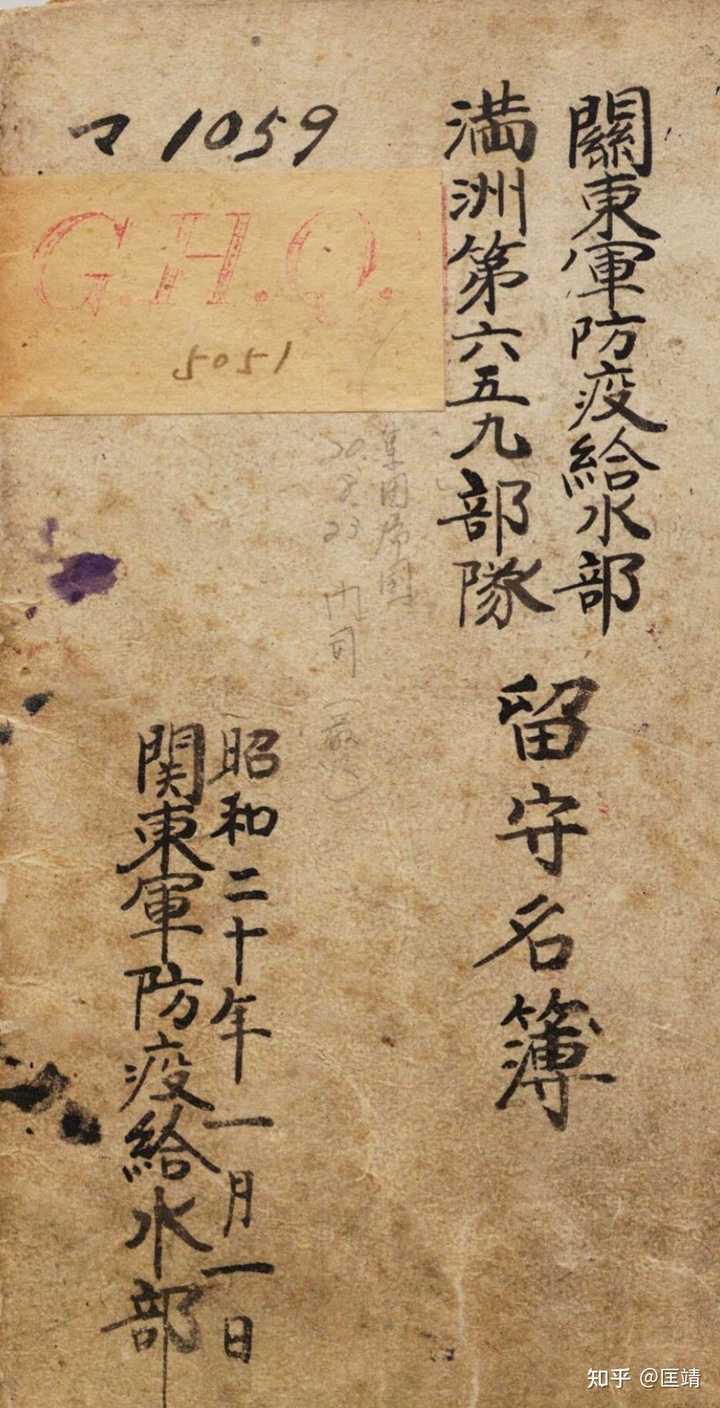 關東軍防疫給水部
満洲第六五九部隊
留守名簿
マ1059
G.H.Q.
5051
20.8.23 内司
昭和二十年一月一日
関東軍防疫給水部
知乎 @匡靖